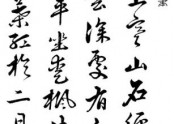 上寒山石徑
雲深處有人
車坐愛楓林
葉紅於二月